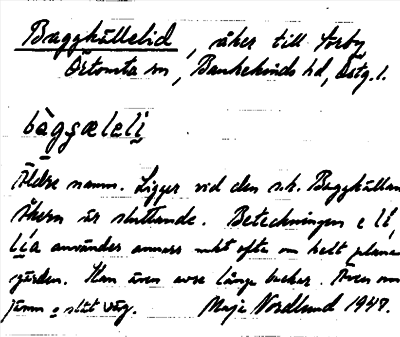 Baggkällelid, åker till Torby,
Örtomta sn, Bankekinds hd, Östg. l.
bàggæleli
Äldre namn. Ligger vid den s.k. Baggkällan
Åkern är sluttande. Beteckningen e li,
lia användes annars rätt ofta om helt plana
gärden. Kan även avse långa backar. Även om
jämn o slät väg. Maja Nordlund 1947.